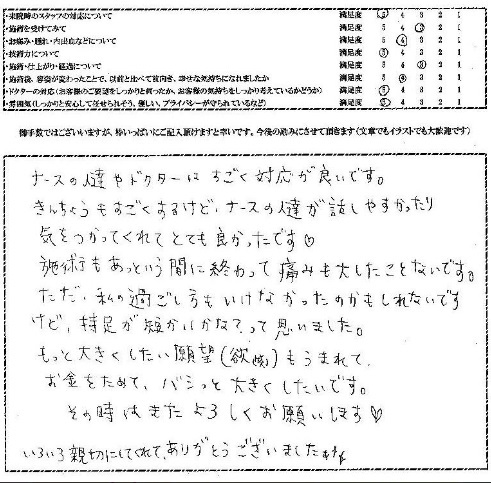 ・来院時のスタッフの対応について 満足度 5 4 3 2 1
・施術を受けてみて 満足度 5 4 3 2 1
・お痛み・腫れ・内出血などについて 満足度 5 4 3 2 1
・技術力について 満足度 5 4 3 2 1
・施術・仕上がり・経過について 満足度 5 4 3 2 1
・施術後、容姿が変わったことで、以前と比べて前向き、幸せな気持ちになれましたか 満足度 5 4 3 2 1
・ドクターの対応(お客様のご要望をしっかりと伺ったか、お客様の気持ちをしっかり考えているかどうか) 満足度 5 4 3 2 1
・雰囲気(しっかりと安心して任せられそう、優しい、プライバシーが守られているなど) 満足度 5 4 3 2 1
御手数ではございいますが、枠いっぱいにご記入頂けますと幸いです。今後の励みにさせて頂きます(文章でもイラストでも大歓迎です)
ナースの人達やドクターはすごく対応が良いです。
きんちょうもすごくするけど、ナースの人達が話しやすかったり
気をつかってくれてとても良かったです♡
施術もあっという間に終わって痛みも大したことないです。
ただ、私の過ごし方もいけなかったのかもしれないです
けど、持足が短かいかなてって思いました。
もっと大きくしたい願望(欲)もうまれて、
お金をためて、バシっと大きくしたいです。
その時はまたよろしくお願いします♡
いろいろ親切にしてくれて、ありがとうございました